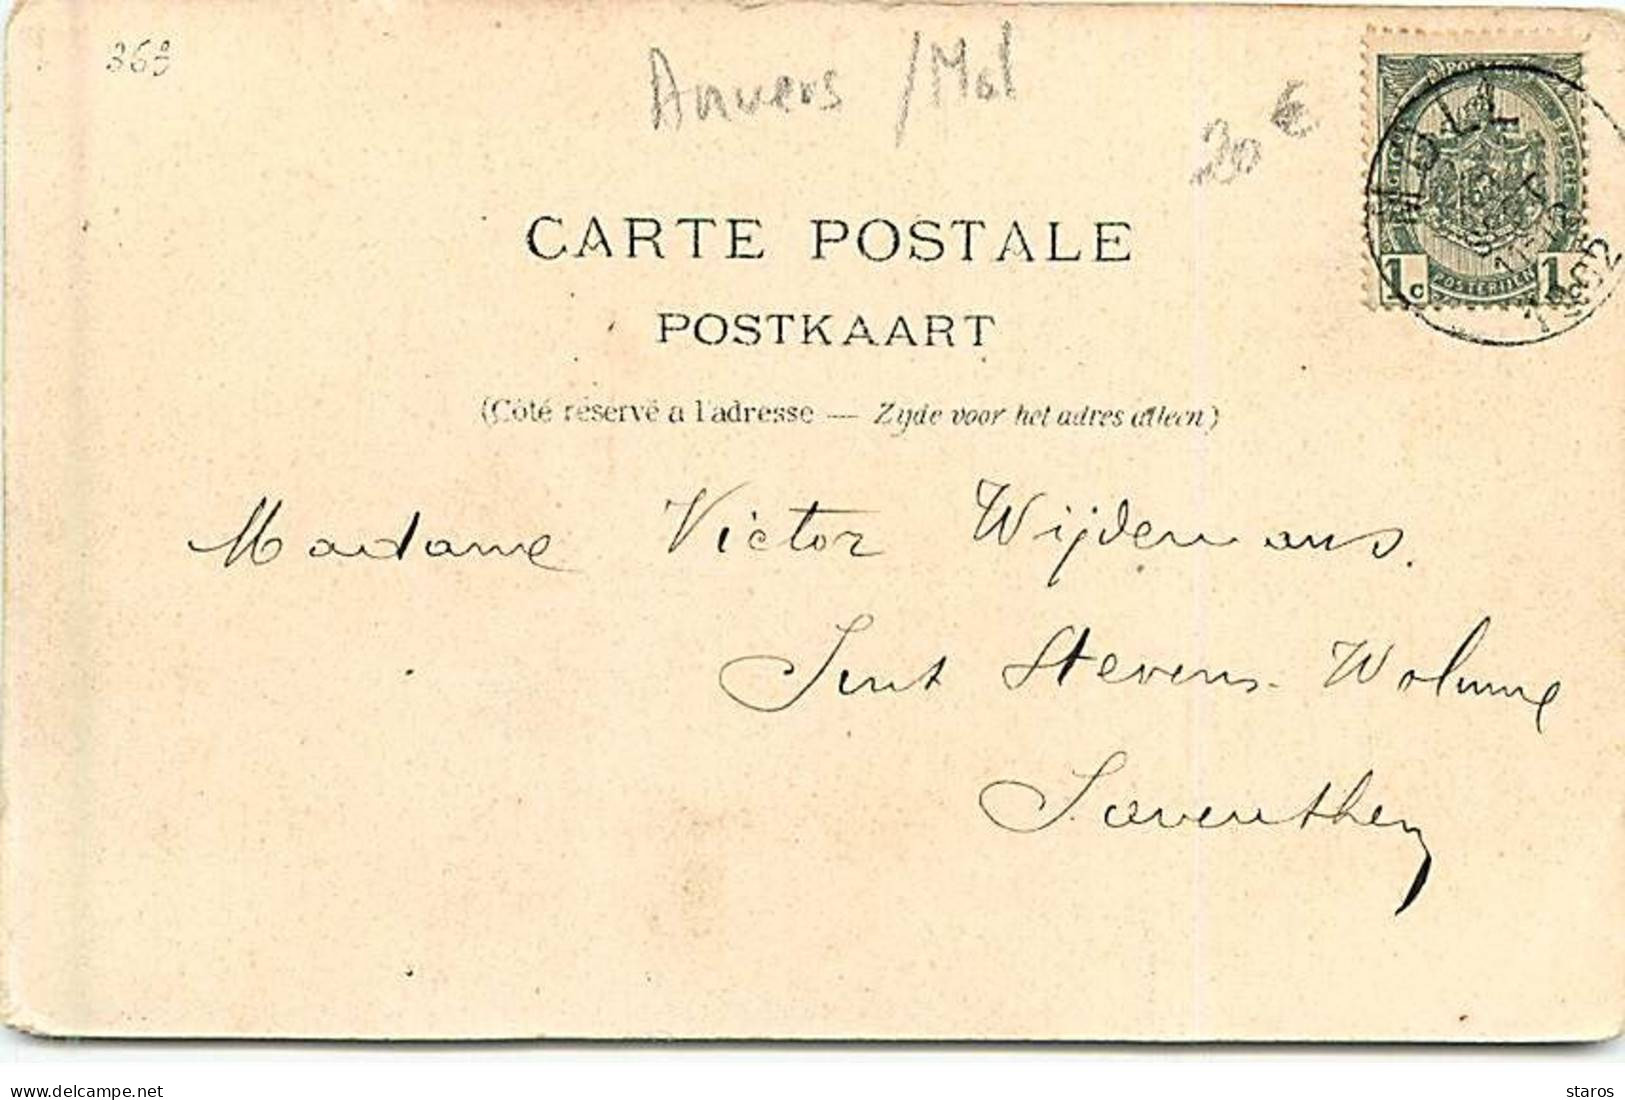 363
Anvers / Mol
20 €
MOLL
1902
1c 1
POSTERIJEN
CARTE POSTALE
POSTKAART
(Côté réservé a l'adresse — Zijde voor het adres alleen)
Madame Victor Wijdemans.
Sint Stevens-Woluwe
Saventhem
delcampe.net
staros